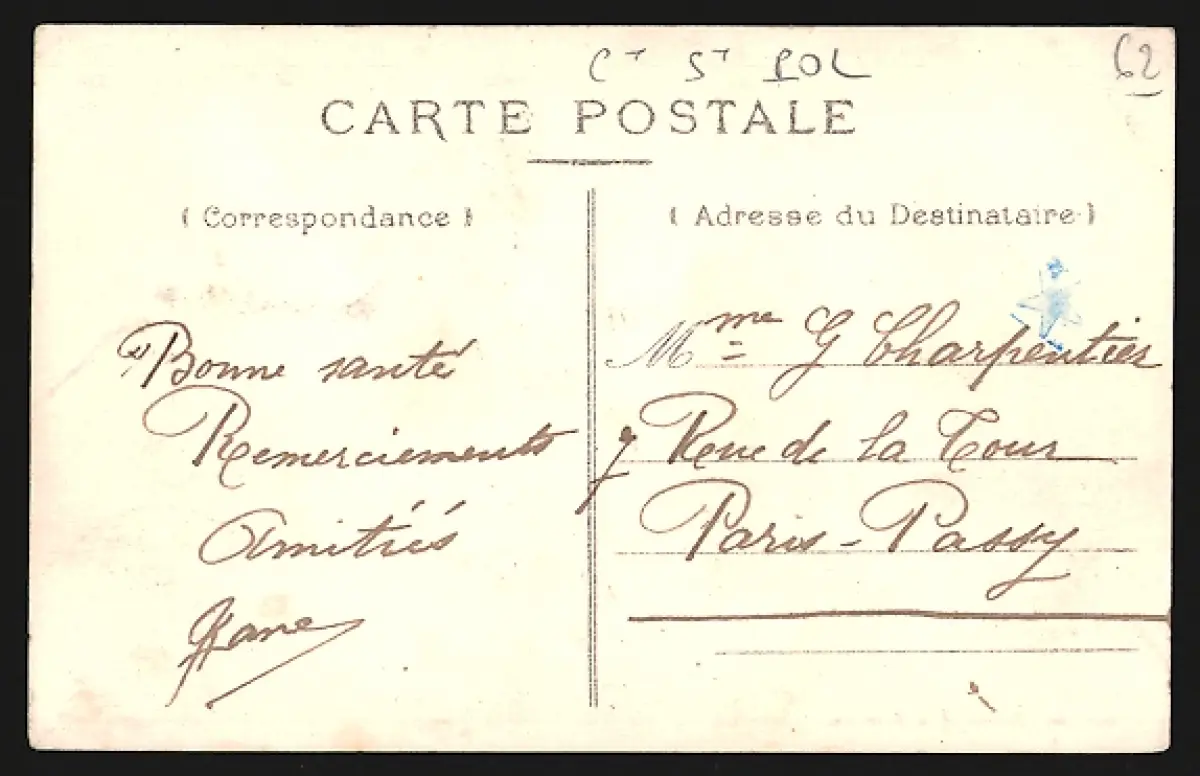 Cᵗ Sᵗ POL
62
CARTE POSTALE
( Correspondance )
( Adresse du Destinataire )
Bonne santé
Remerciements
Amitiés
Mᵐᵉ G Charpentier
7 Rue de la Tour
Paris-Passy